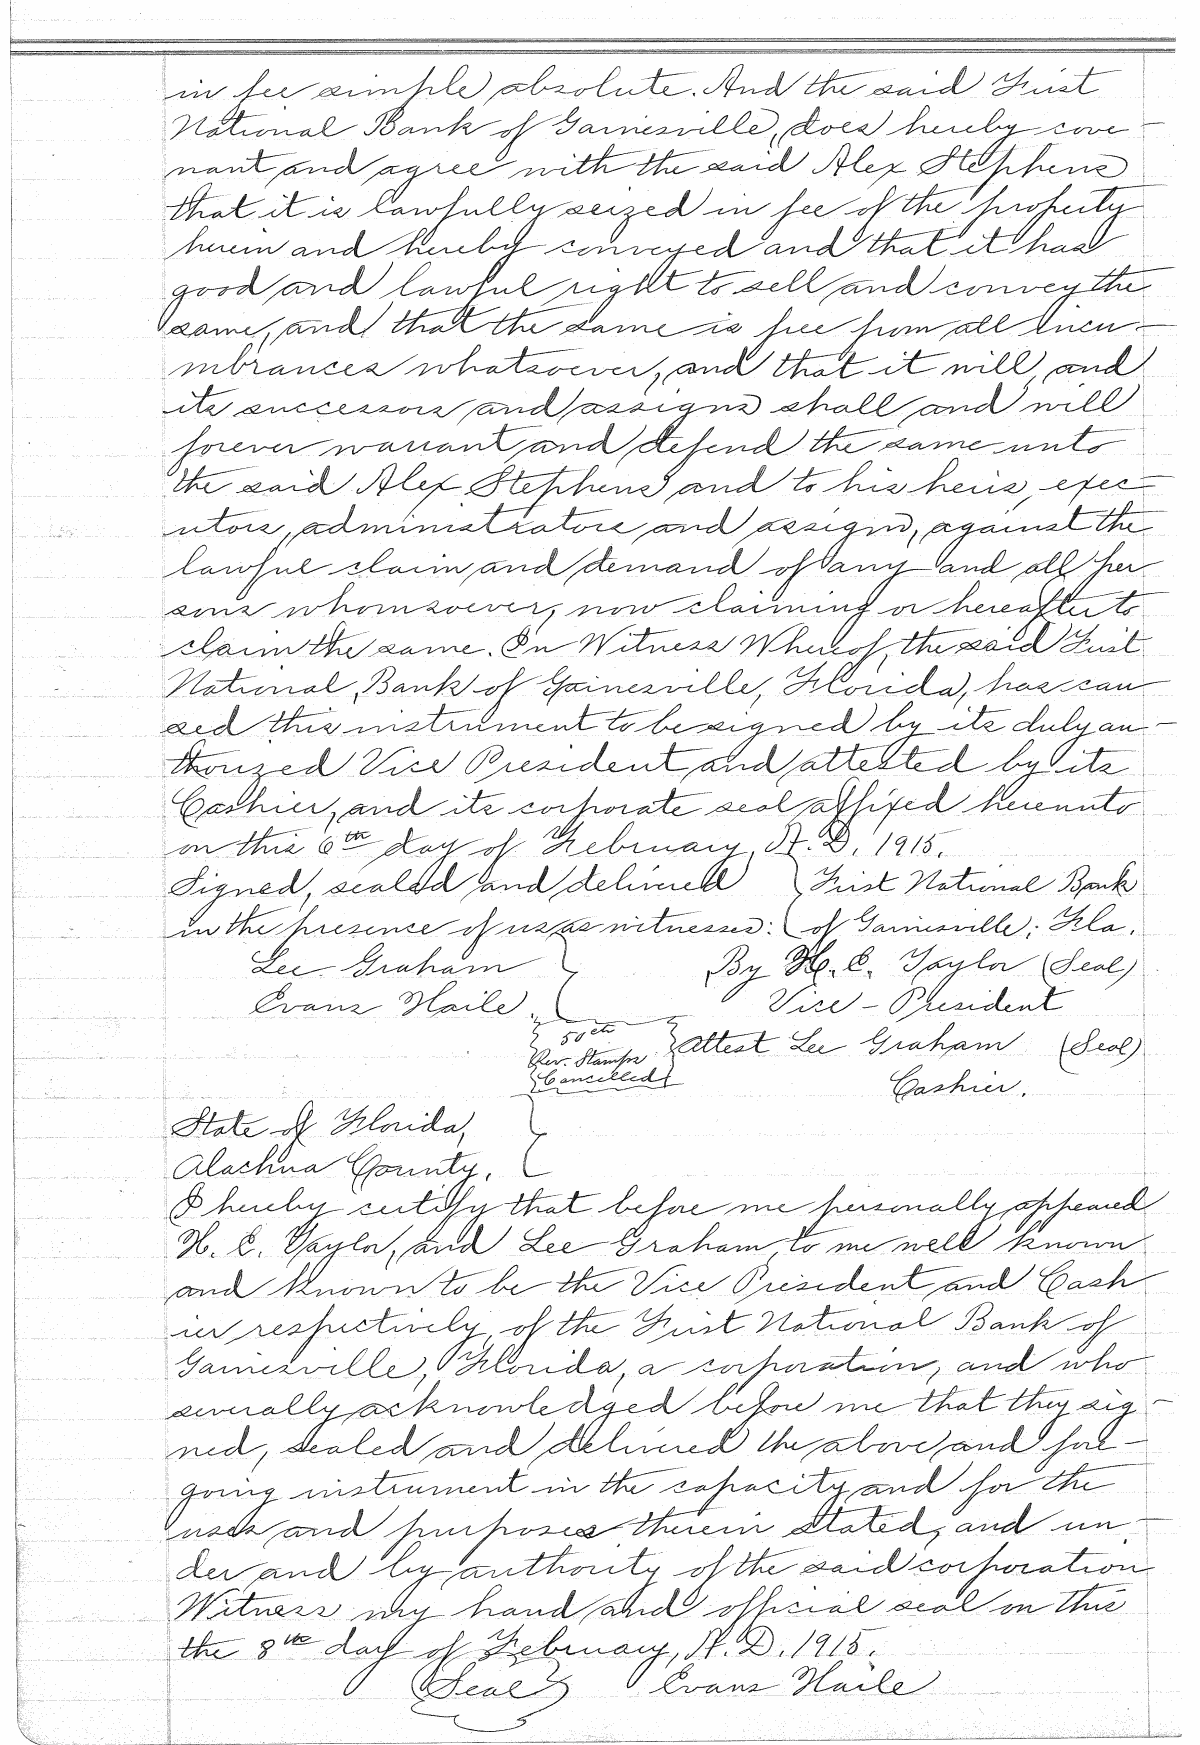 in fee simple absolute. And the said First
National Bank of Gainesville, does hereby cove-
nant and agree with the said Alex Stephens
that it is lawfully seized in fee of the property
herein and hereby conveyed and that it has
good and lawful right to sell and convey the
same, and that the same is free from all incu-
mbrances whatsoever, and that it will, and
its successors and assigns shall and will
forever warrant and defend the same unto
the said Alex Stephens and to his heirs, exec-
utors, administrators and assigns, against the
lawful claim and demand of any and all per
sons whomsoever, now claiming or hereafter to
claim the same. In Witness Whereof, the said First
National Bank of Gainesville, Florida, has cau
sed this instrument to be signed by its duly au-
thorized Vice President and attested by its
Cashier, and its corporate seal affixed hereunto
on this 6th day of February, A. D. 1915.
Signed, sealed and delivered First National Bank
in the presence of us as witnesses: of Gainesville, Fla.
Lee Graham By H. E. Taylor (Seal)
Evans Haile Vice-President
50cts Attest Lee Graham (Seal)
Rev. Stamps
Cancelled Cashier.
State of Florida,
Alachua County.
I hereby certify that before me personally appeared
H. E. Taylor, and Lee Graham, to me well known
and known to be the Vice President and Cash
ier respectively, of the First National Bank of
Gainesville, Florida, a corporation, and who
severally acknowledged before me that they sig-
ned, sealed and delivered the above and fore-
going instrument in the capacity and for the
uses and purposes therein stated, and un-
der and by authority of the said corporation
Witness my hand and official seal on this
the 8th day of February, A. D. 1915.
(Seal) Evans Haile